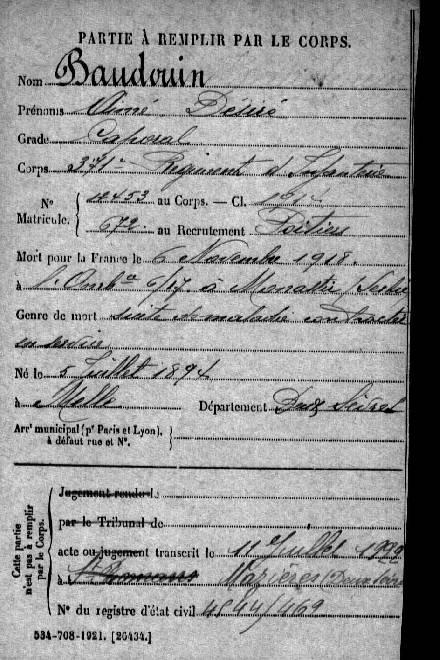 PARTIE À REMPLIR PAR LE CORPS.
Nom Baudouin
Prénoms Aimé Désiré
Grade Caporal
Corps 371e Régiment d'Infanterie
N° Matricule. 12453 au Corps. — Cl. 191
672 au Recrutement Poitiers
Mort pour la France le 6 Novembre 1918.
à l'Ambce 6/17 à Monastir (Serbie
Genre de mort suite de maladie contractée
en service
Né le 5 Juillet 1894
à Melle Département Deux Sèvres
Arrt municipal (pr Paris et Lyon), à défaut rue et N°.
Cette partie n'est pas à remplir par le Corps.
Jugement rendu le
par le Tribunal de
acte ou jugement transcrit le 11 Juillet 1922
à St Romans Mazières (Deux Sèvres
N° du registre d'état civil 4544/469
534-708-1921. [26434.]